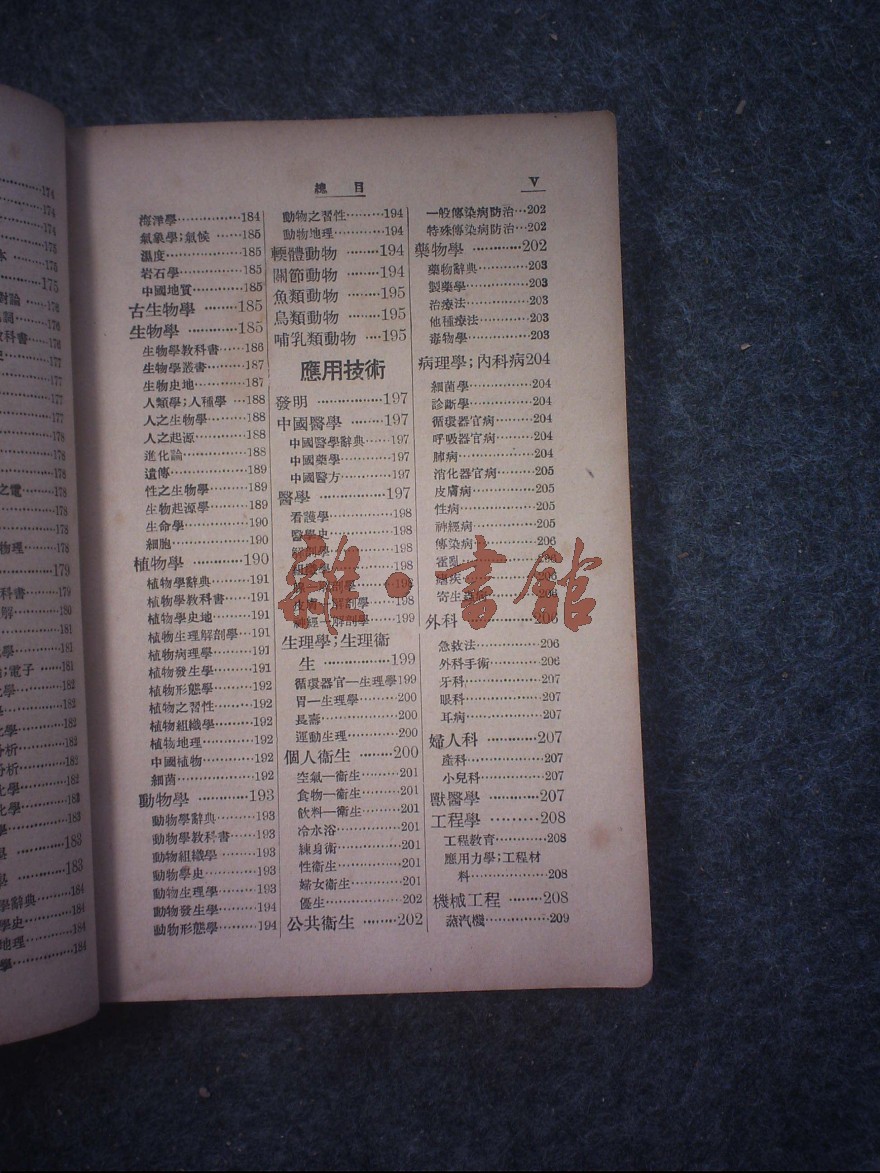 總目 V
海洋學 184
氣象學;氣候 185
濕度 185
岩石學 185
中國地質 185
古生物學 185
生物學 185
生物學教科書 186
生物學叢書 187
生物史地 187
人類學;人種學 188
人之生物學 188
人之起源 188
進化論 188
遺傳 189
性之生物學 189
生物起源學 189
生命學 190
細胞 190
植物學 190
植物學辭典 191
植物學教科書 191
植物學史地 191
植物生理解剖學 191
植物病理學 191
植物發生學 191
植物形態學 192
植物之習性 192
植物組織學 192
植物地理 192
中國植物 192
細菌 192
動物學 193
動物學辭典 193
動物學教科書 193
動物組織學 193
動物學史 193
動物生理學 193
動物發生學 194
動物形態學 194
動物之習性 194
動物地理 194
輭體動物 194
關節動物 194
魚類動物 195
鳥類動物 195
哺乳類動物 195
應用技術
發明 197
中國醫學 197
中國醫學辭典 197
中國藥學 197
中國醫方 197
醫學 197
看護學 198
醫學史 198
解剖學 198
學 198
解剖學 198
皮膚—解剖學 198
神經—解剖學 199
生理學;生理衞
生 199
循環器官—生理學 199
胃—生理學 200
長壽 200
運動生理 200
個人衞生 200
空氣—衞生 201
食物—衞生 201
飲料—衞生 201
冷水浴 201
練身術 201
性衞生 201
婦女衞生 201
優生 202
公共衞生 202
一般傳染病防治 202
特殊傳染病防治 202
藥物學 202
藥物辭典 203
製藥學 203
治療法 203
他種療法 203
毒物學 203
病理學;內科病 204
細菌學 204
診斷學 204
循環器官病 204
呼吸器官病 204
肺病 204
消化器官病 205
皮膚病 205
性病 205
神經病 205
傳染病 206
霍亂 206
瘧疾 206
寄生 206
外科 206
急救法 206
外科手術 206
牙科 207
眼科 207
耳病 207
婦人科 207
產科 207
小兒科 207
獸醫學 207
工程學 208
工程教育 208
應用力學;工程材
料 208
機械工程 208
蒸汽機 209
雜·書館